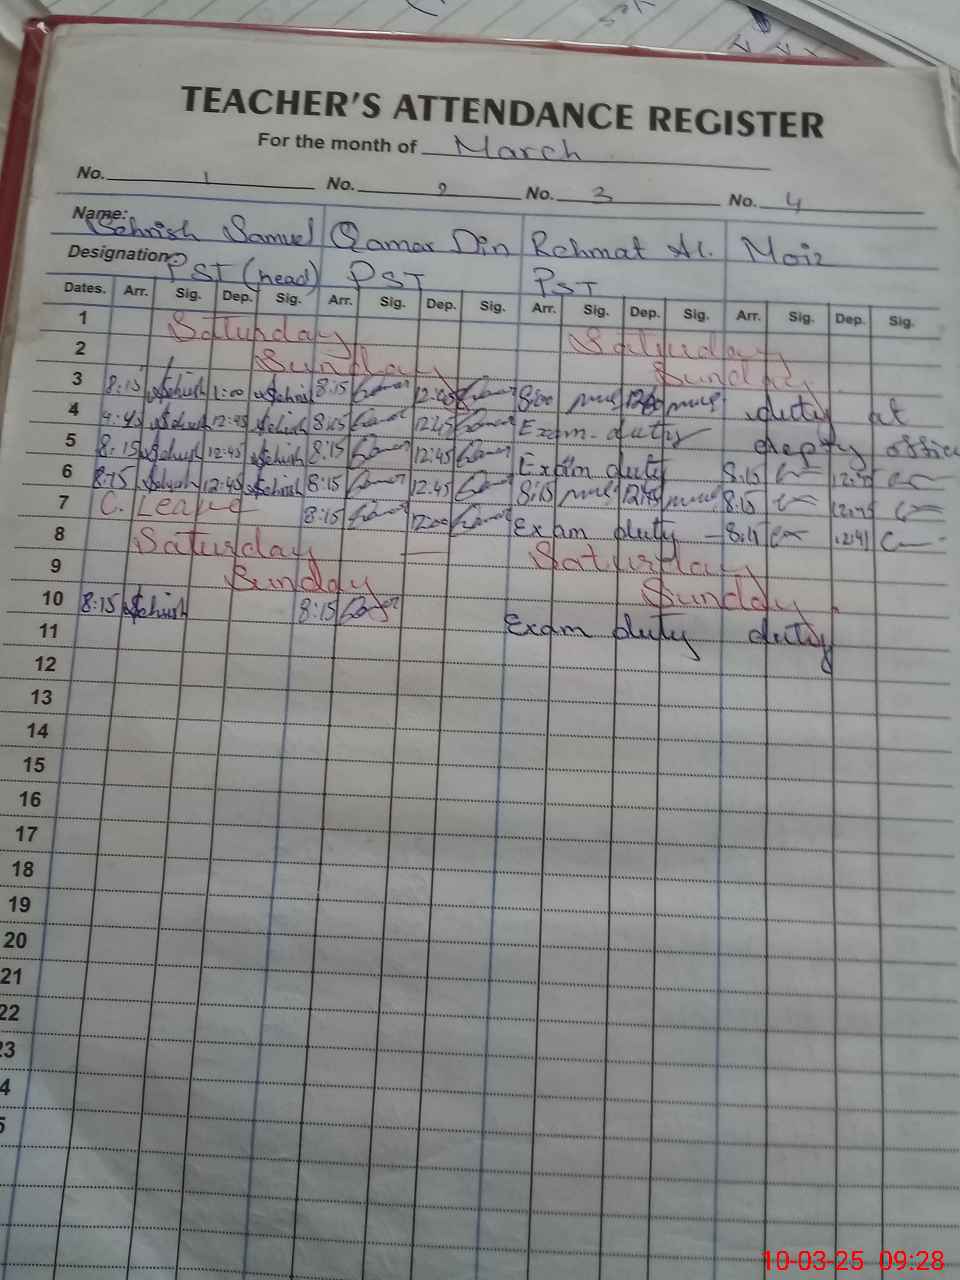 TEACHER'S ATTENDANCE REGISTER
For the month of March
No. 1 No. 2 No. 3 No. 4
Name: Sehrish Samuel Qamar Din Rehmat Al. Moiz
Designation: PST (head) PST PST
Dates. Arr. Sig. Dep. Sig. Arr. Sig. Dep. Sig. Arr. Sig. Dep. Sig. Arr. Sig. Dep. Sig.
1 Saturday Saturday
2 Sunday Sunday
3 8:15 Sehrish 1:00 Sehrish 8:15 12:45 8:00 duty at
4 Sehrish 12:45 Sehrish 8:15 12:45 Exam duty depty office
5 8:15 Sehrish 12:45 Sehrish 8:15 12:45 Exam duty 8:15
6 8:15 Sehrish 12:45 Sehrish 8:15 12:45 8:15 12:45 8:15
7 C. Leave 8:15 12:00 Exam duty - 8:11 12:41
8 Saturday Saturday
9 Sunday Sunday
10 8:15 Sehrish 8:15 Exam duty duty
11
12
13
14
15
16
17
18
19
20
21
22
23
4
5
10-03-25 09:28